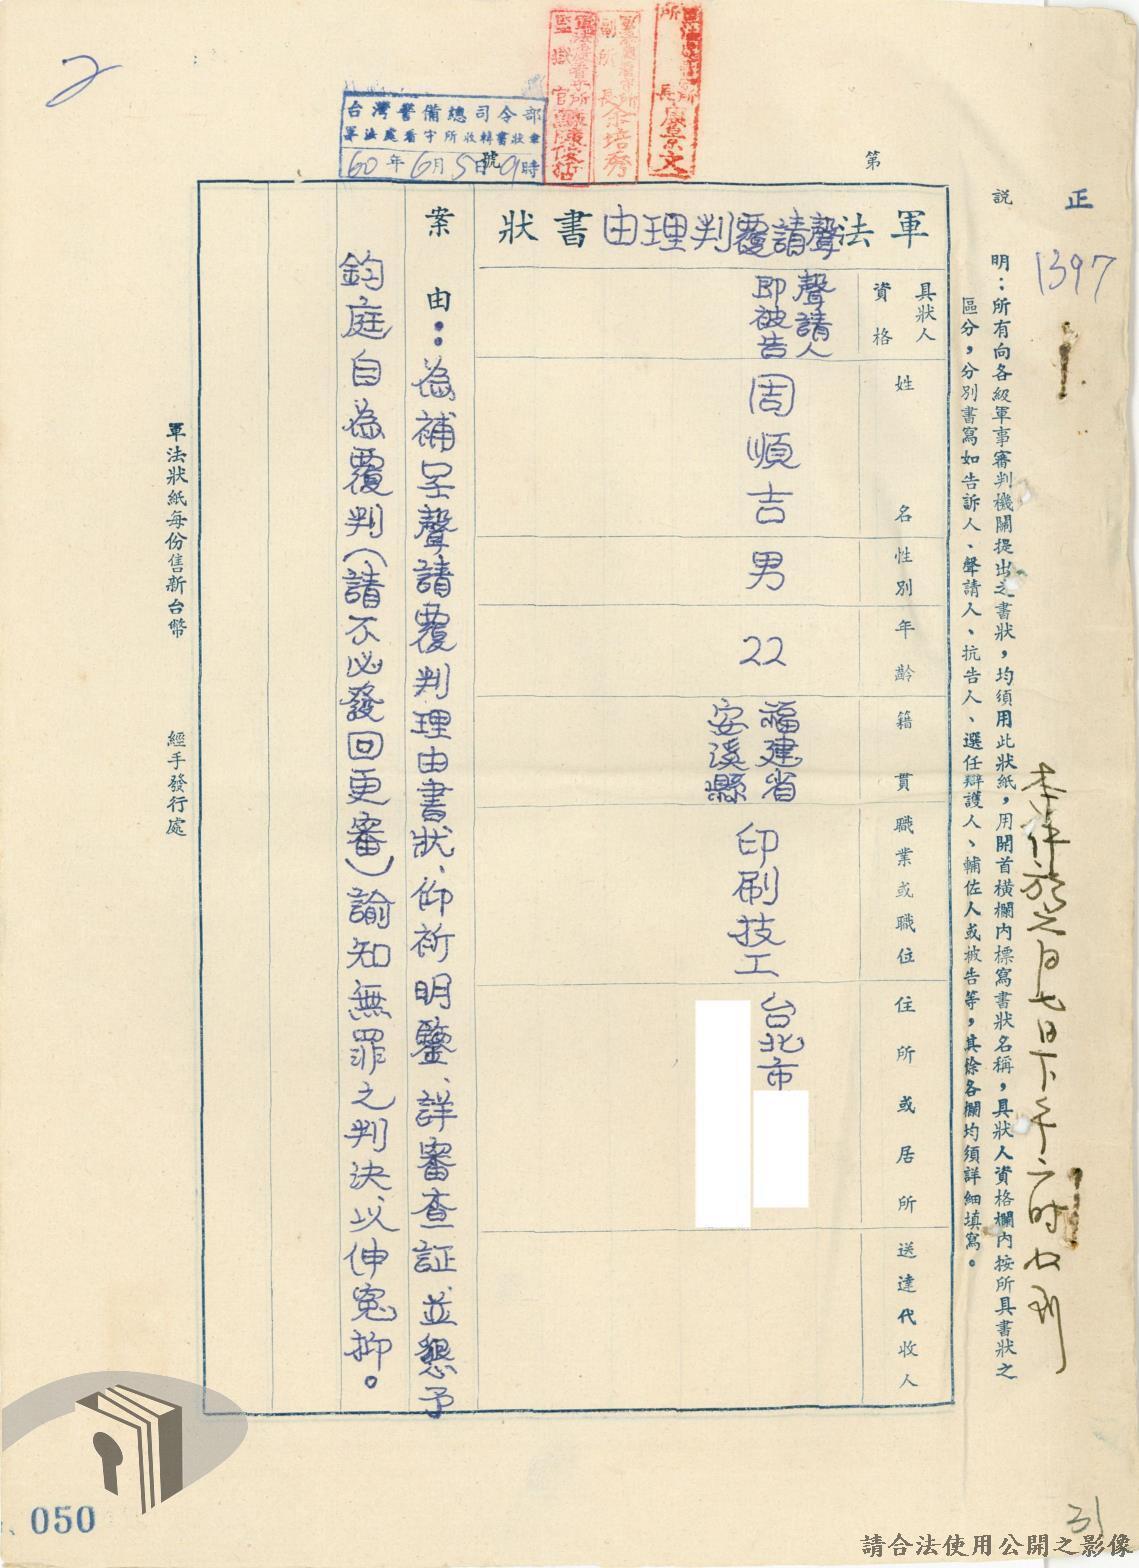 正
1397
本件於六月七日下午二時收到
說明：所有向各級軍事審判機關提出之書狀，均須用此狀紙，用開首橫欄內標寫書狀名稱，具狀人資格欄內按所具書狀之
區分，分別書寫如告訴人、聲請人、抗告人、選任辯護人、輔佐人或被告等，其餘各欄均須詳細填寫。
第
號
軍法聲請覆判理由書狀
具狀人
資格
姓名
性別
年齡
籍貫
職業或職位
住所或居所
送達代收人
聲請人
即被告
周順吉
男
22
福建省
安溪縣
印刷技工
台北市
案由：為補呈聲請覆判理由書狀、仰祈明鑒、詳審查証並懇予
鈞庭自為覆判（請不必發回更審）諭知無罪之判決、以伸冤抑。
軍法狀紙每份售新台幣
經手發行處
台灣警備總司令部
軍法處看守所收轉書狀章
60年6月5日9時
2
050
31
請合法使用公開之影像